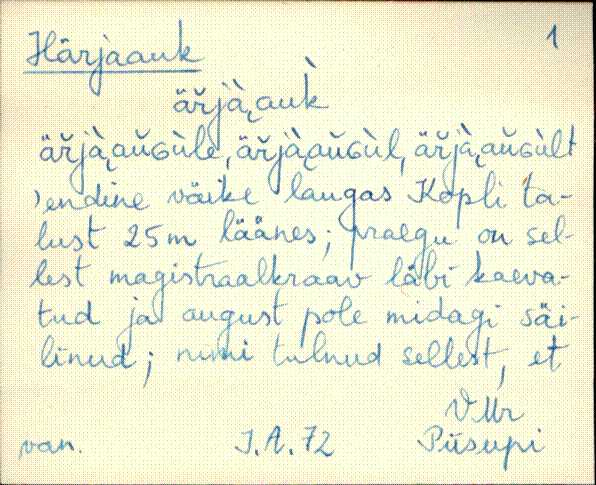 Härjaauk 1
är̆jà̬auk̀
är̆jà̬aŭɢùle, är̆jà̬aŭɢùl, är̆jà̬aŭɢùlt
'endine väike laugas Kopli ta-
lust 25m läänes; praegu on sel-
lest magistraalkraav läbi kaeva-
tud ja august pole midagi säi-
linud; nimi tulnud sellest, et
V.Mr
van. J.A.72 Piisupi